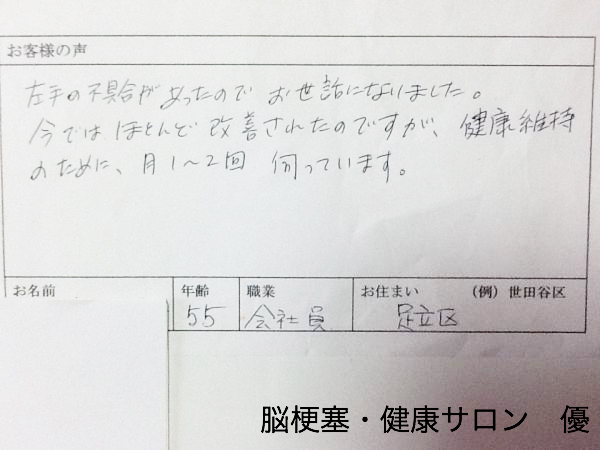 お客様の声
左手の不具合があったので お世話になりました。
今では ほとんど 改善されたのですが、健康維持
のために、月1〜2回 伺っています。
お名前 年齢 職業 お住まい (例)世田谷区
55 会社員 足立区
脳梗塞・健康サロン 優